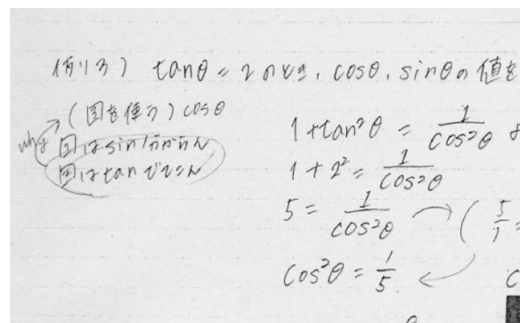 例3) tanθ = 2のとき, cosθ, sinθの値を
(図を使う) cosθ
why
図はsin
図はtan
1+tan²θ = 1/cos²θ
1+2² = 1/cos²θ
5 = 1/cos²θ (5/1 =
cos²θ = 1/5